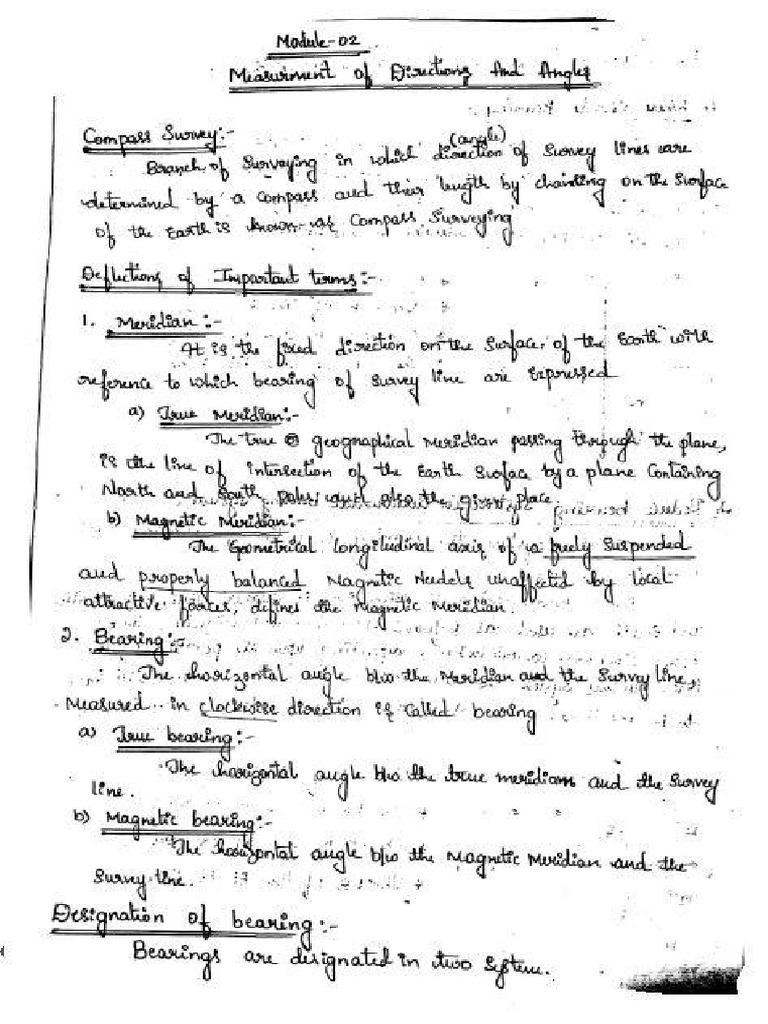 Module-02
Measurment of Directions And Angles
Compass Survey:-
(angle)
Branch of Surveying in which direction of Survey lines are
determined by a compass and their length by chainting on the Surface
of the Earth is known as Compass Surveying
Deflections of Impartant terms:-
1. Meridian:-
It is the fixed direction on the Surface, of the Earth with
reference to which bearing of Survey line are Expressed
a) True Meridian:-
The true geographical Meridian passing through the plane,
is the line of intersection of the Earth Surface by a plane Containing
North and South Poles and also the given place.
b) Magnetic Meridian:-
The Geometrical longitudinal axis of a freely Suspended
and properly balanced Magnetic Needele unaffected by local
attractive forces, defines the Magnetic Meridian.
2. Bearing:-
The horizontal angle b/w the Meridian and the Survey line,
Measured in clockwise direction is Called bearing
a) True bearing:-
The horizontal angle b/w the true meridian and the Survey
line.
b) Magnetic bearing:-
The horizontal angle b/w the Magnetic Meridian and the
Survey line.
Designation of bearing:-
Bearings are designated in two System.